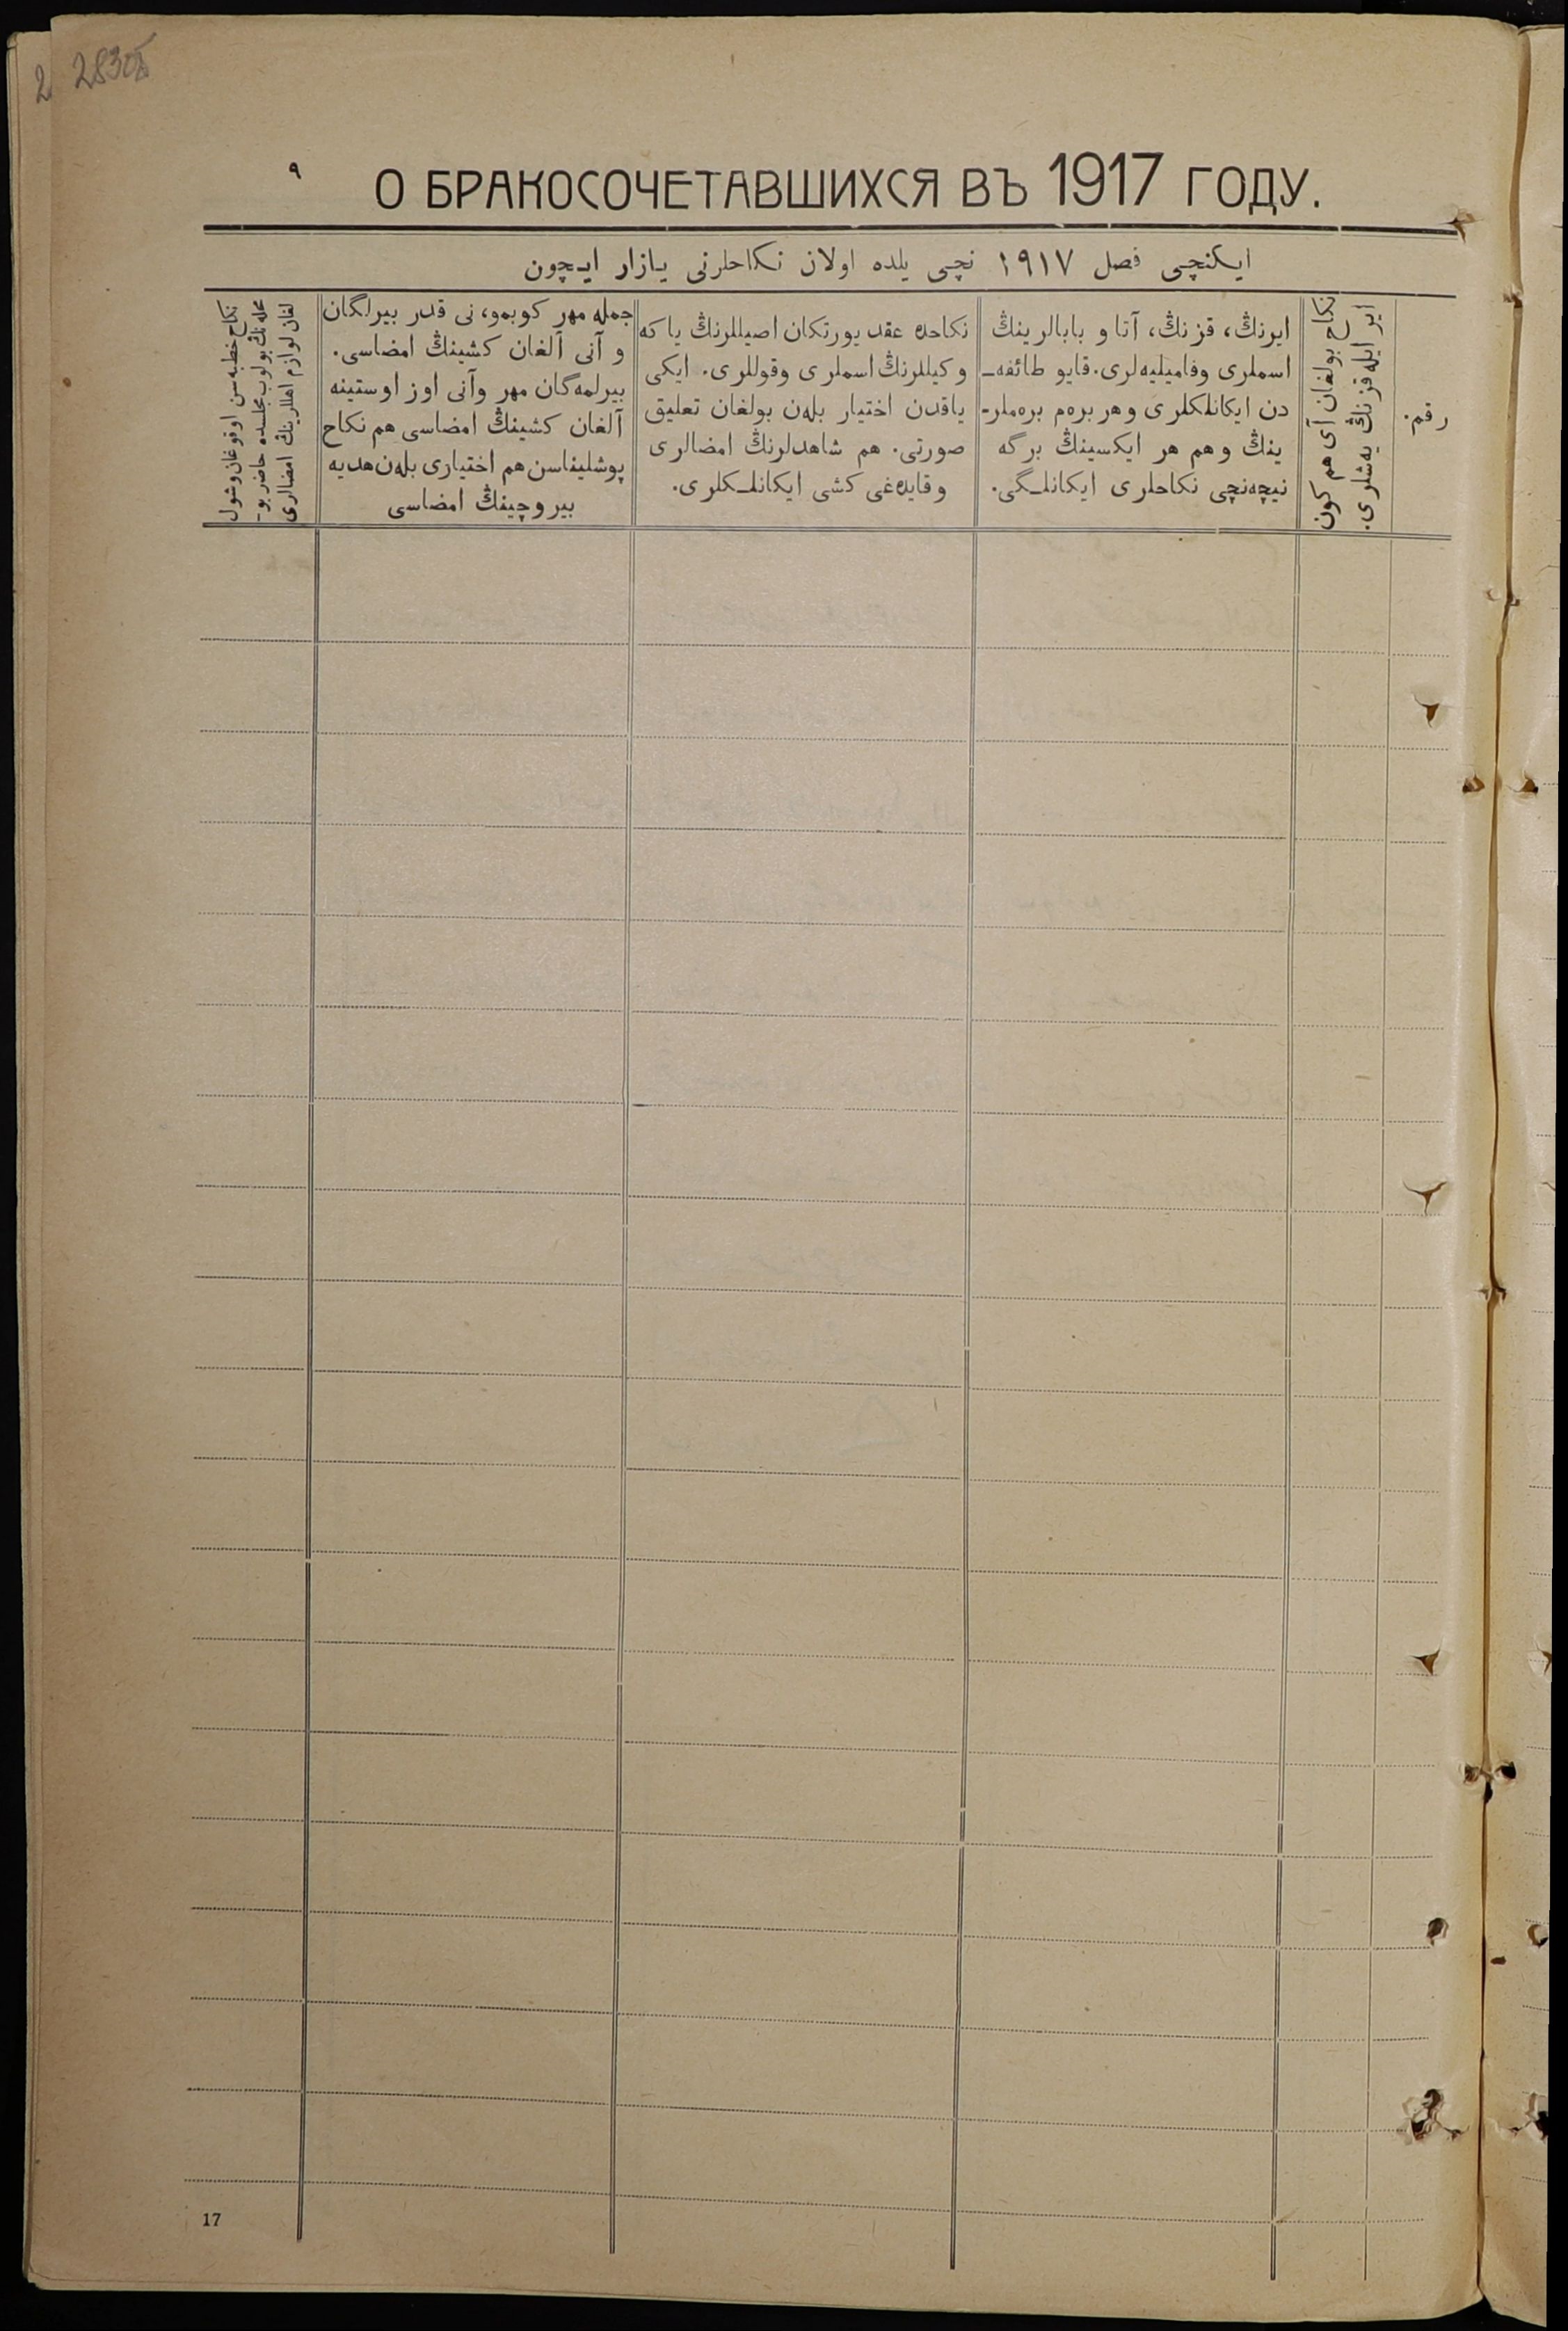 283об
٩
О БРАКОСОЧЕТАВШИХСЯ ВЪ 1917 ГОДУ.
ایکنچی فصل ١٩١٧ نچی یلده اولان نکاحلرنی یازار ایچون
رقم.
ایر ایله قزنڭ یەشلری.
نکاح بولغان آی هم کون
ایرنڭ، قزنڭ، آتا و بابالرینڭ
اسملری وفامیلیەلری. قایو طائفە‌ـ
دن ایکانلکلری وهر برەم برەملر-
ینڭ وهم هر ایکسینڭ برگه
نیچەنچی نکاحلری ایکانلـگی.
نکاحده عقد یورتکان اصیللرنڭ یا که
وکیللرنڭ اسملری وقوللری. ایکی
یاقدن اختیار بلەن بولغان تعلیق
صورتی. هم شاهدلرنڭ امضالری
وقایدەغی کشی ایکانلـکلری.
جمله مهر کوبمو، نی قدر بیرلگان
و آنی آلغان کشینڭ امضاسی.
بیرلمەگان مهر وآنی اوز اوستینه
آلغان کشینڭ امضاسی هم نکاح
پوشلیناسن هم اختیاری بلەن هدیه
بیروچینڭ امضاسی
نکاح خطبەسن اوقوغان وشول
محلەنڭ بولوب مجلسده حاضر بو-
لغان لوازم اهللرینڭ امضالری
17